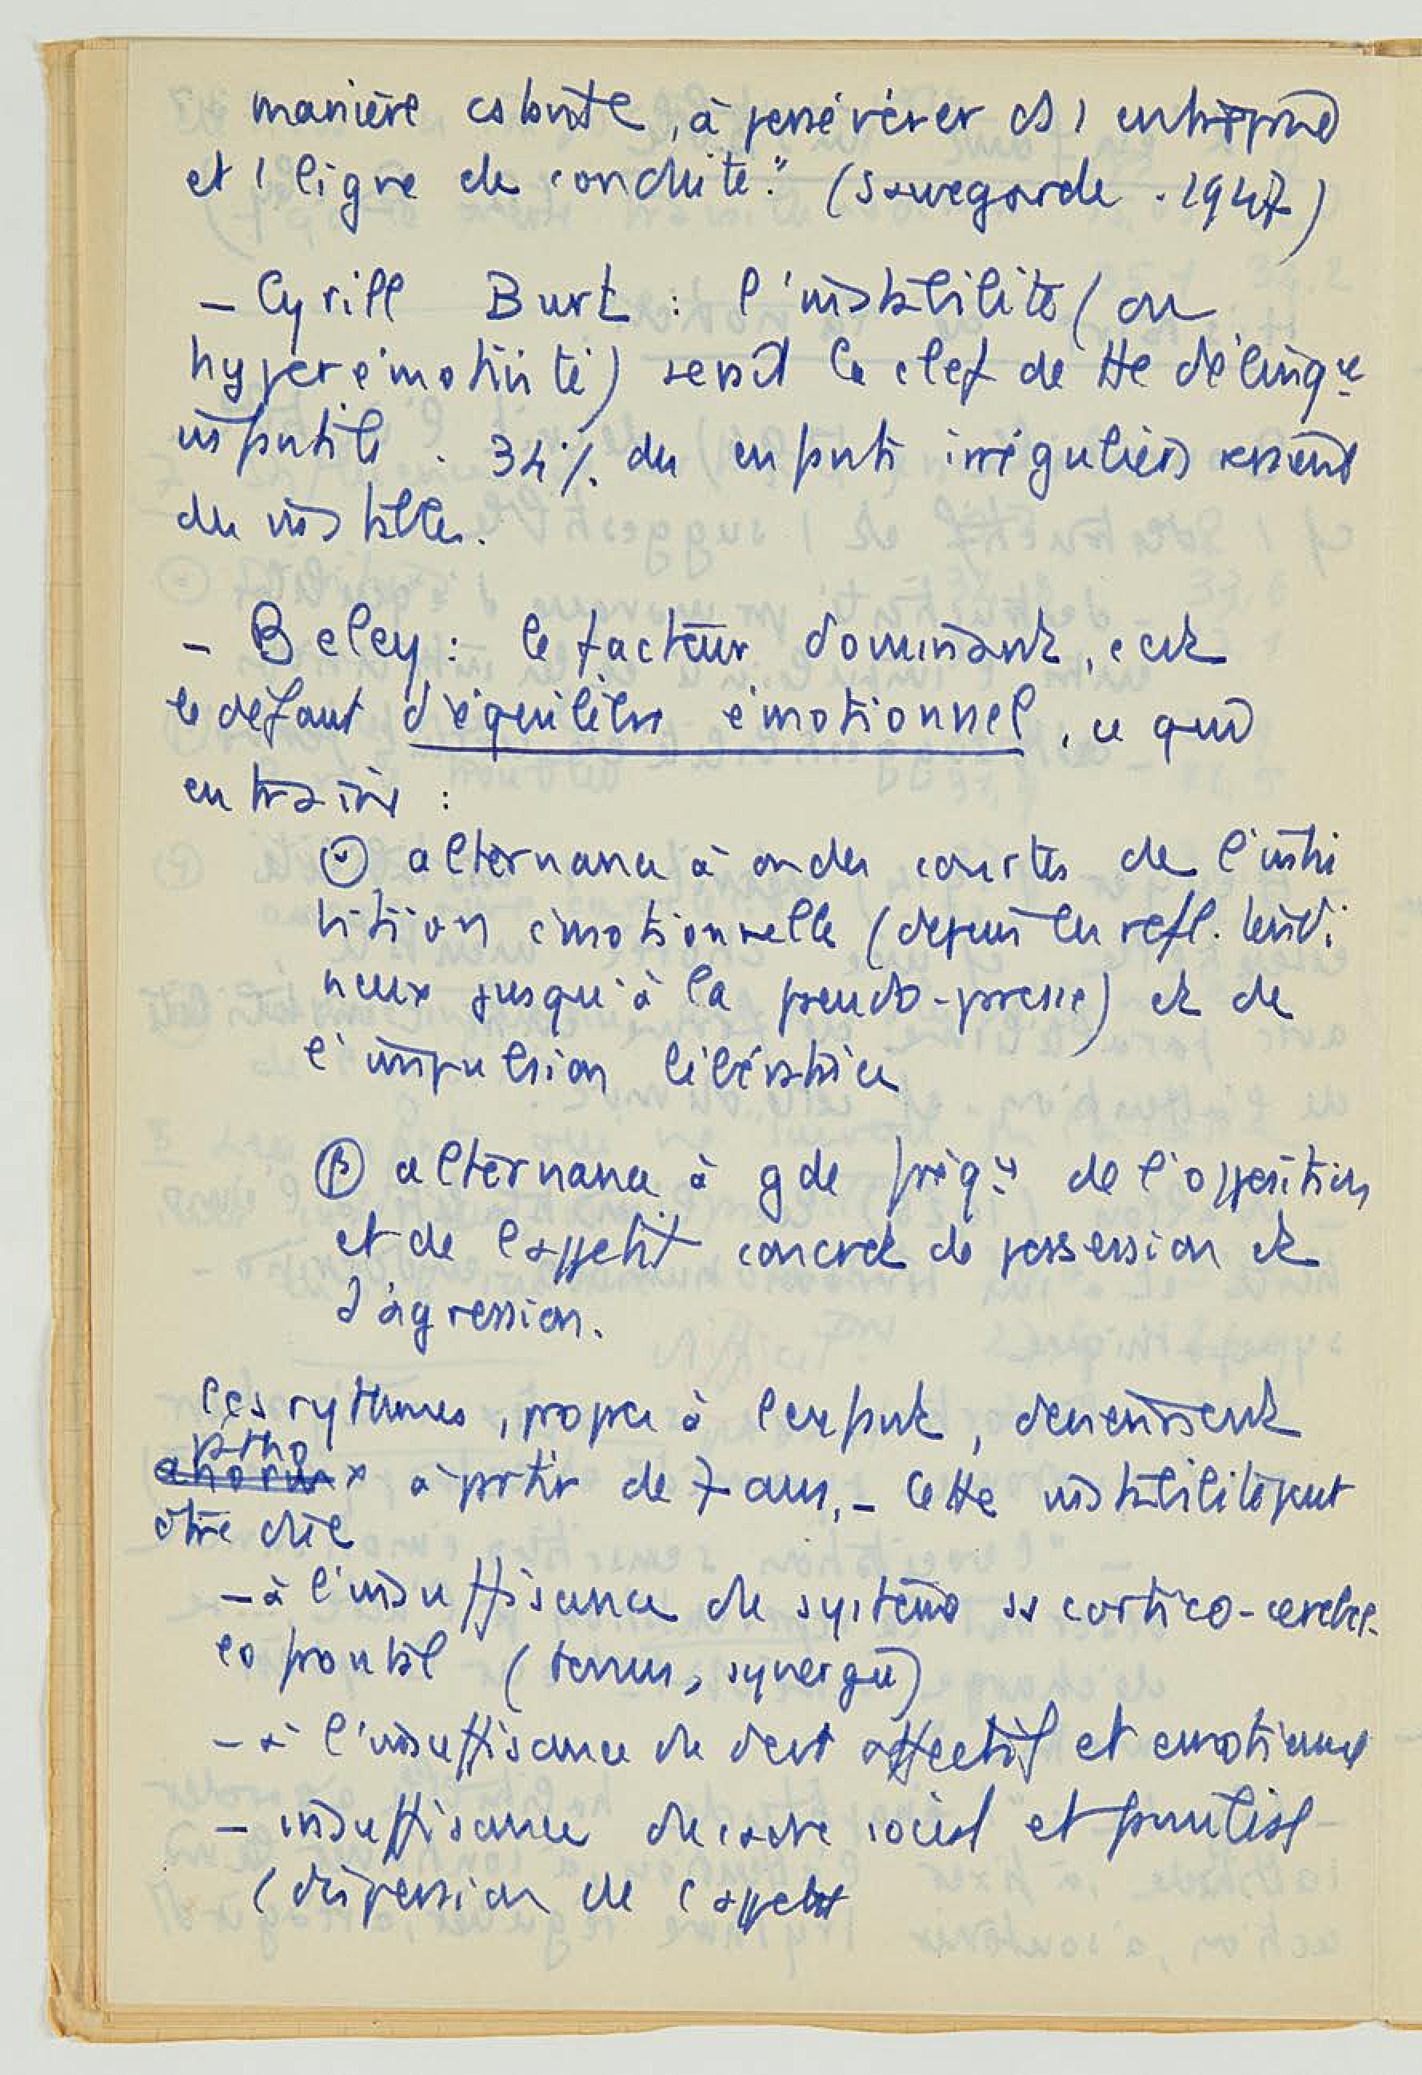 manière cstante, à persévérer ds 1 entreprise
et 1 ligne de conduite." (Sauvegarde. 1947)
– Cyrill Burt : l'instabilité (ou
hyperémotivité) serait la clef de tte délinqce
infantile. 34% des enfants irréguliers seraient
des instables.
– Beley : le facteur dominant, c'est
le défaut d'équilibre émotionnel, ce qui
entraine :
alternance à ondes courtes de l'inhi
bition émotionnelle (depuis les refl. tendi
neux jusqu'à la pseudo-presse) et de
l'impulsion libératrice
β alternance à gde fréqce de l'opposition
et de l'appétit concret de possession et
d'agression.
Ces rythmes, propres à l'enfant, deviennent
patho
x à partir de 7 ans. – Cette instabilité peut
être due
– à l'insuffisance du système ss cortico-cerebel
frontal (tonus, synergie)
– à l'insuffisance du devt affectif et emotionnel
– insuffisance du cadre social et familial
(dispersion de l'appétit